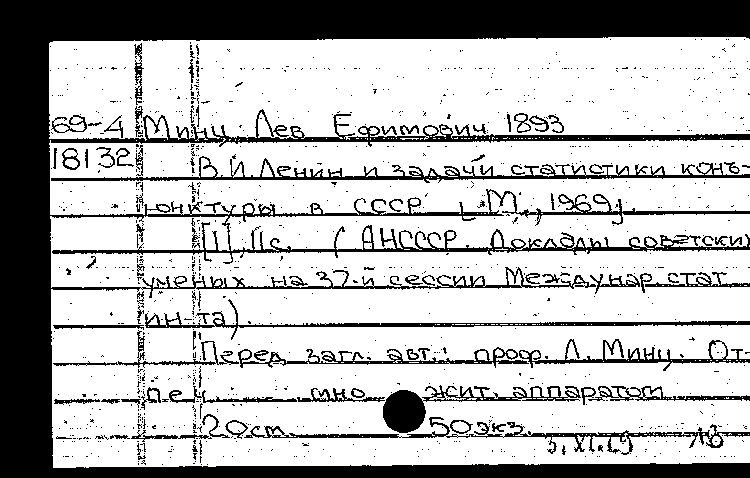 69-4 Минц Лев Ефимович 1893
18132 В.И.Ленин и задачи статистики конъ-
юнктуры в СССР [М., 1969].
[1], 11с. (АНСССР. Доклады советских
ученых на 37-й сессии Междунар стат
ин-та).
Перед загл. авт.: проф. Л. Минц. От-
печ мно жит. аппаратом
20см. 50экз.
3.XI.69 18